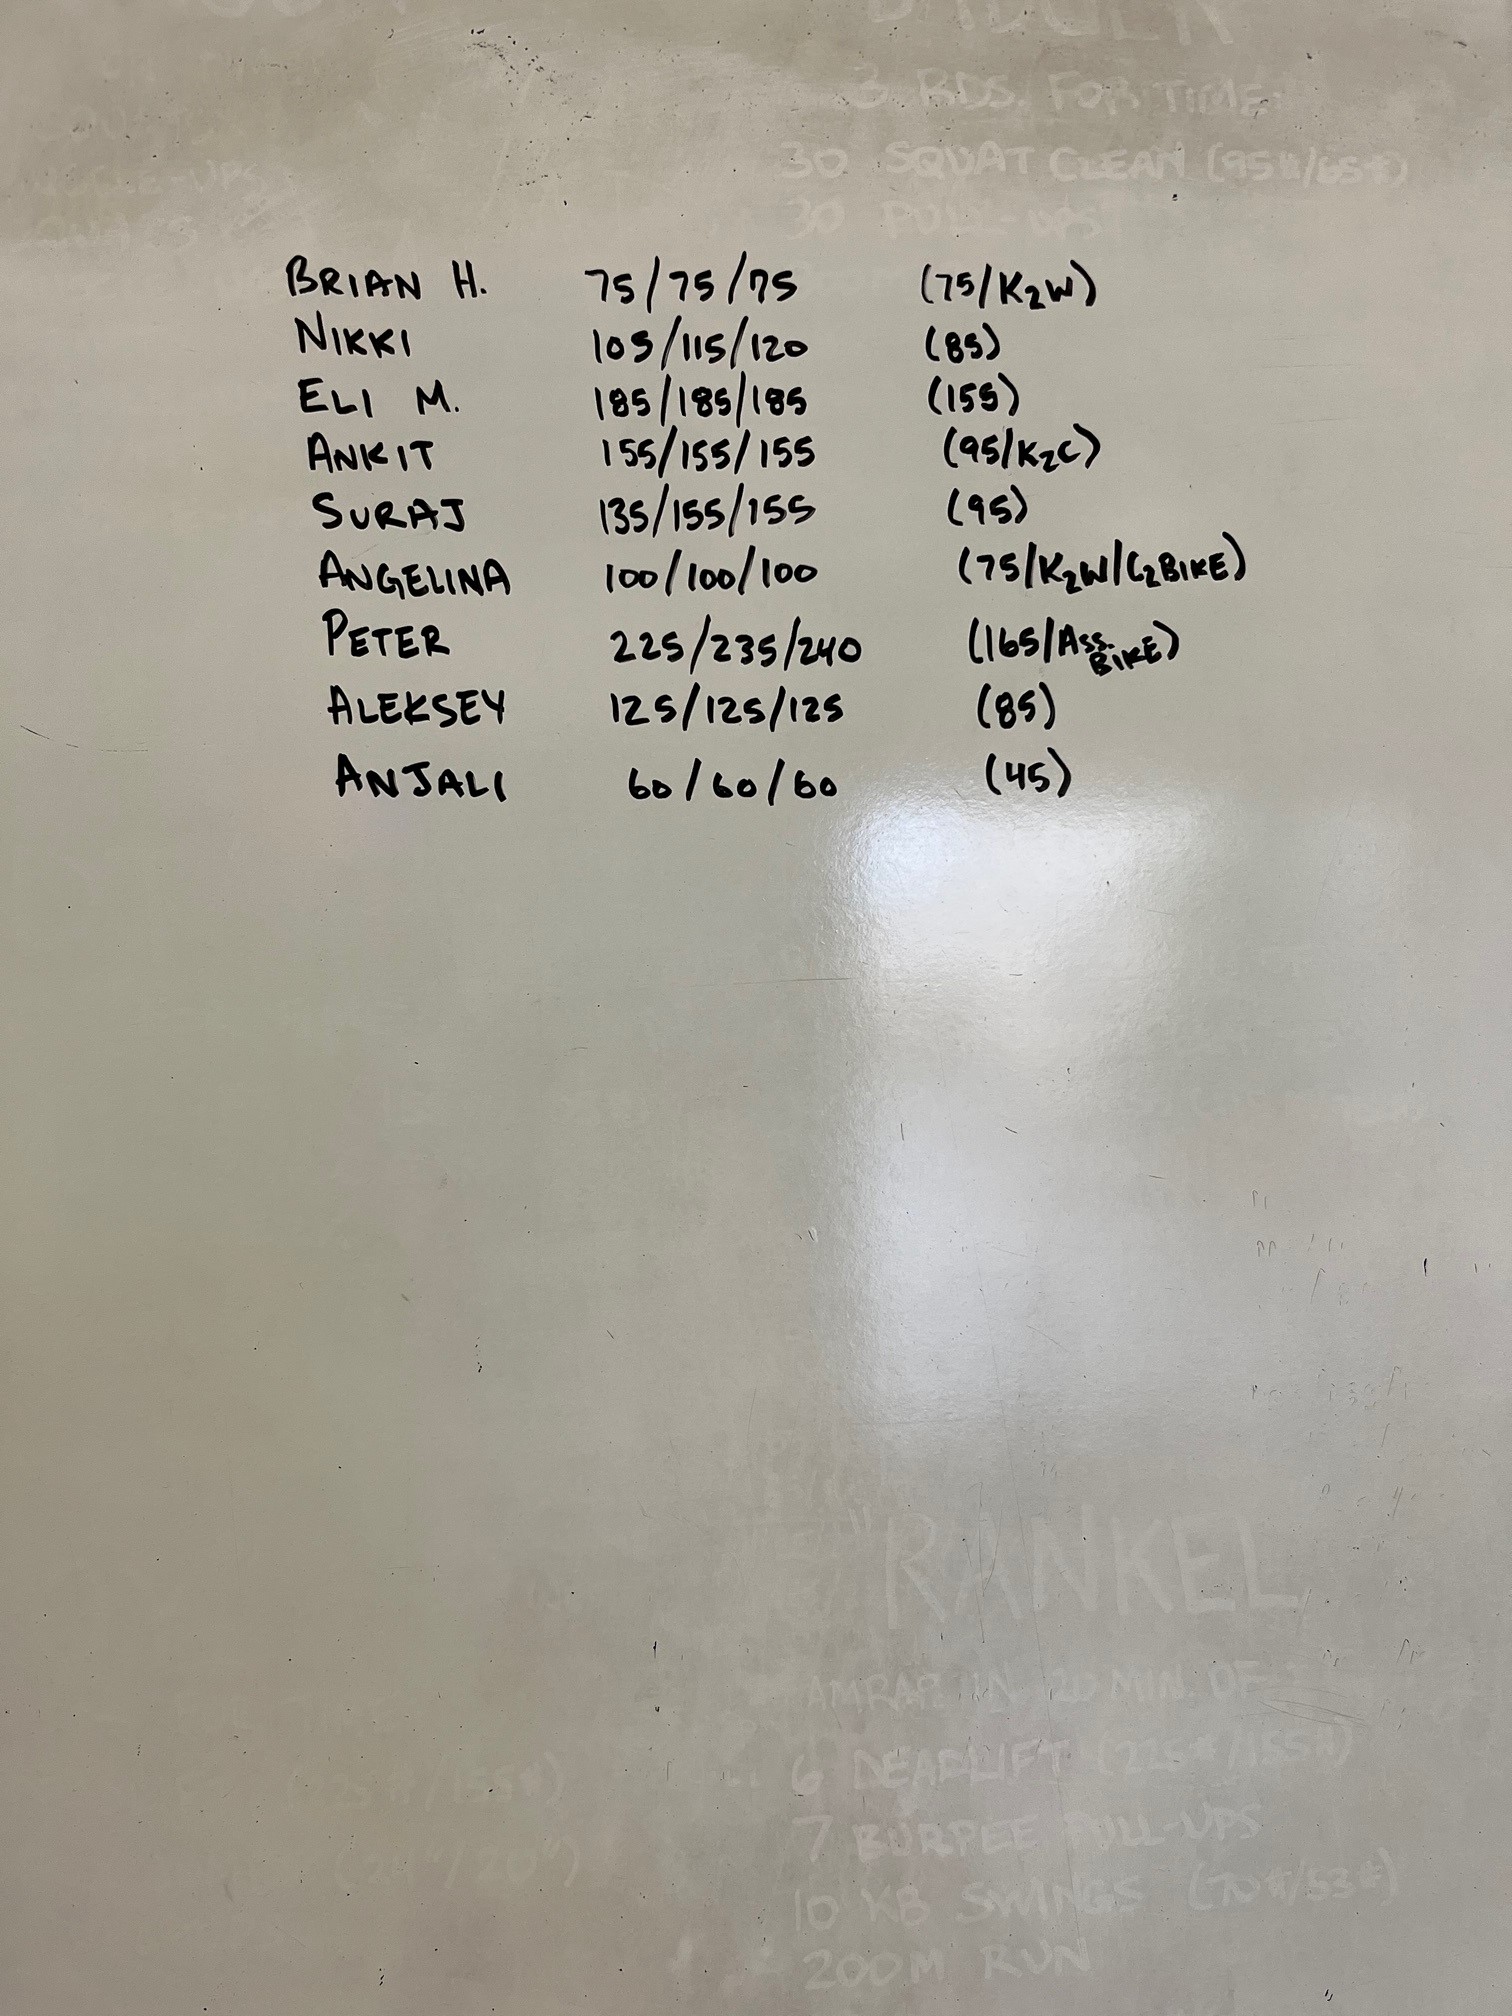 3 RDS. FOR TIME:
30 SQUAT CLEAN (95#/65#)
30 PULL-UPS
BRIAN H. 75/75/75 (75/K2W)
NIKKI 105/115/120 (85)
ELI M. 185/185/185 (155)
ANKIT 155/155/155 (95/K2C)
SURAJ 135/155/155 (95)
ANGELINA 100/100/100 (75/K2W/C2BIKE)
PETER 225/235/240 (165/ASS. BIKE)
ALEKSEY 125/125/125 (85)
ANJALI 60/60/60 (45)
"RANKEL
AMRAP IN 20 MIN. OF:
6 DEADLIFT (225#/155#)
7 BURPEE PULL-UPS
10 KB SWINGS (70#/53#)
200M RUN